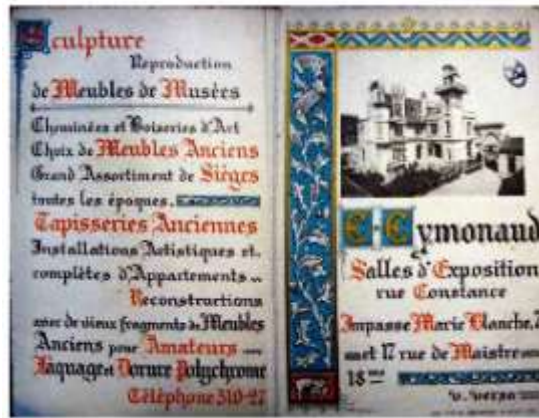 Sculpture
Reproduction
de Meubles de Musées
Cheminées et Boiseries d'Art
Choix de Meubles Anciens
Grand Assortiment de Sièges
toutes les époques.
Tapisseries Anciennes
Installations Artistiques et
complètes d'Appartements
Reconstructions
avec de vieux fragments de Meubles
Anciens pour Amateurs
Laquage et Dorure Polychrome
Téléphone 510-27
E. Cymonaud
Salles d'Exposition
rue Constance
Impasse Marie Blanche, 7
et 17 rue de Maistre
18me
v. verso